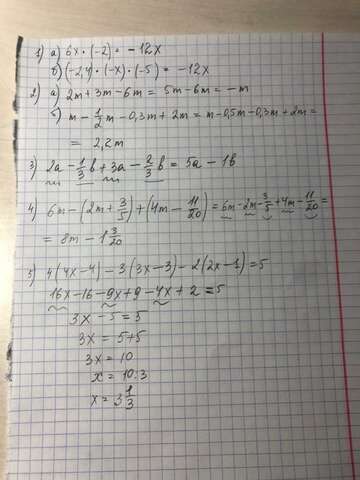 1) а) 6x · (-2) = -12x
б) (-2,4) · (-x) · (-5) = -12x
2) а) 2m + 3m - 6m = 5m - 6m = -m
б) m - 1/2 m - 0,3m + 2m = m - 0,5m - 0,3m + 2m =
= 2,2m
3) 2a - 1/3 b + 3a - 2/3 b = 5a - 1b
4) 6m - (2m + 3/5) + (4m - 11/20) = 6m - 2m - 3/5 + 4m - 11/20 =
= 8m - 1 3/20
5) 4(4x - 4) - 3(3x - 3) - 2(2x - 1) = 5
16x - 16 - 9x + 9 - 4x + 2 = 5
3x - 5 = 5
3x = 5+5
3x = 10
x = 10:3
x = 3 1/3